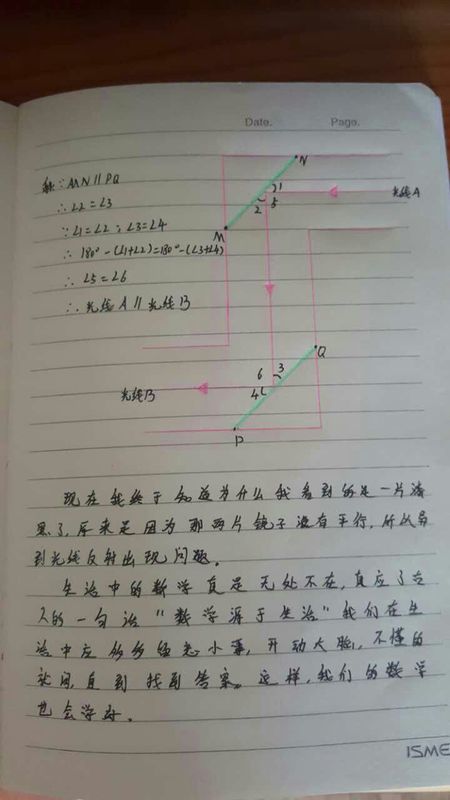 Date.
Page.
解:∵MN∥PQ
∴∠2=∠3
∵∠1=∠2;∠3=∠4
∴180°-(∠1+∠2)=180°-(∠3+∠4)
∴∠5=∠6
∴光线A∥光线B
N
1
5
2
M
光线A
Q
3
6
4
光线B
P
现在我终于知道为什么我看到的是一片漆
黑了,原来是因为那两片镜子没有平行,所以导
到光线反射出现问题。
生活中的数学真是无处不在,真应了古
人的一句话"数学源于生活"我们在生
活中应多多留意小事,开动大脑,不懂的
就问,直到找到答案。这样,我们的数学
也会学好。
ISME